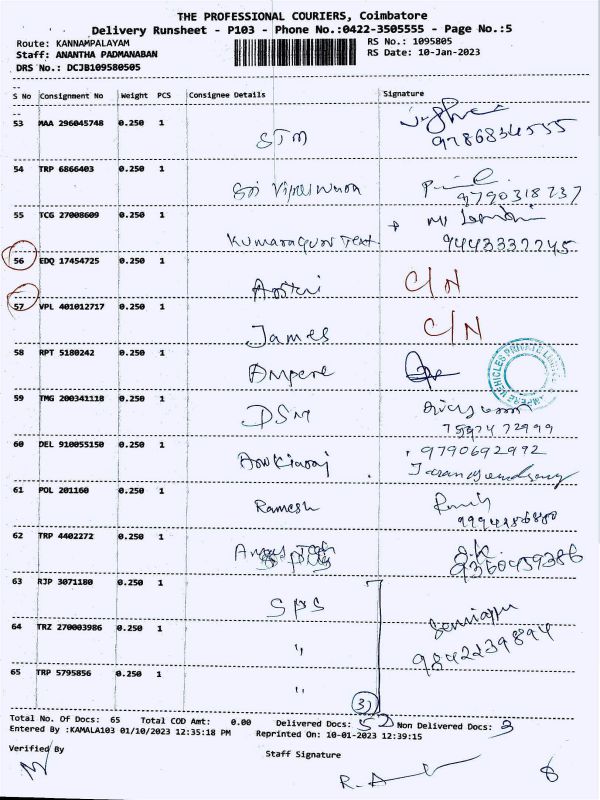 THE PROFESSIONAL COURIERS, Coimbatore
Delivery Runsheet - P103 - Phone No.:0422-3505555 - Page No.:5
Route: KANNAMPALAYAM RS No.: 1095805
Staff: ANANTHA PADMANABAN RS Date: 10-Jan-2023
DRS No.: DCJB109580505
S No Consignment No Weight PCS Consignee Details Signature
53 MAA 296045748 0.250 1 STM
9786834555
54 TRP 6866403 0.250 1 Sri
9790318737
55 TCG 27008609 0.250 1 Kumaraguru Text
9443332245
56 EDQ 17454725 0.250 1 C/N
57 VPL 401012717 0.250 1 James C/N
58 RPT 5180242 0.250 1 Ampere
AMPERE VEHICLES PRIVATE LIMITED
59 TMG 200341118 0.250 1 DSM
72999
60 DEL 910055150 0.250 1 9790692992
61 POL 201160 0.250 1 Ramesh
62 TRP 4402272 0.250 1
9360459386
63 RJP 3071180 0.250 1 SPS
64 TRZ 270003986 0.250 1 "
9842239894
65 TRP 5795856 0.250 1 "
3)
Total No. Of Docs: 65 Total COD Amt: 0.00 Delivered Docs: Non Delivered Docs: 3
Entered By :KAMALA103 01/10/2023 12:35:18 PM Reprinted On: 10-01-2023 12:39:15
Verified By Staff Signature